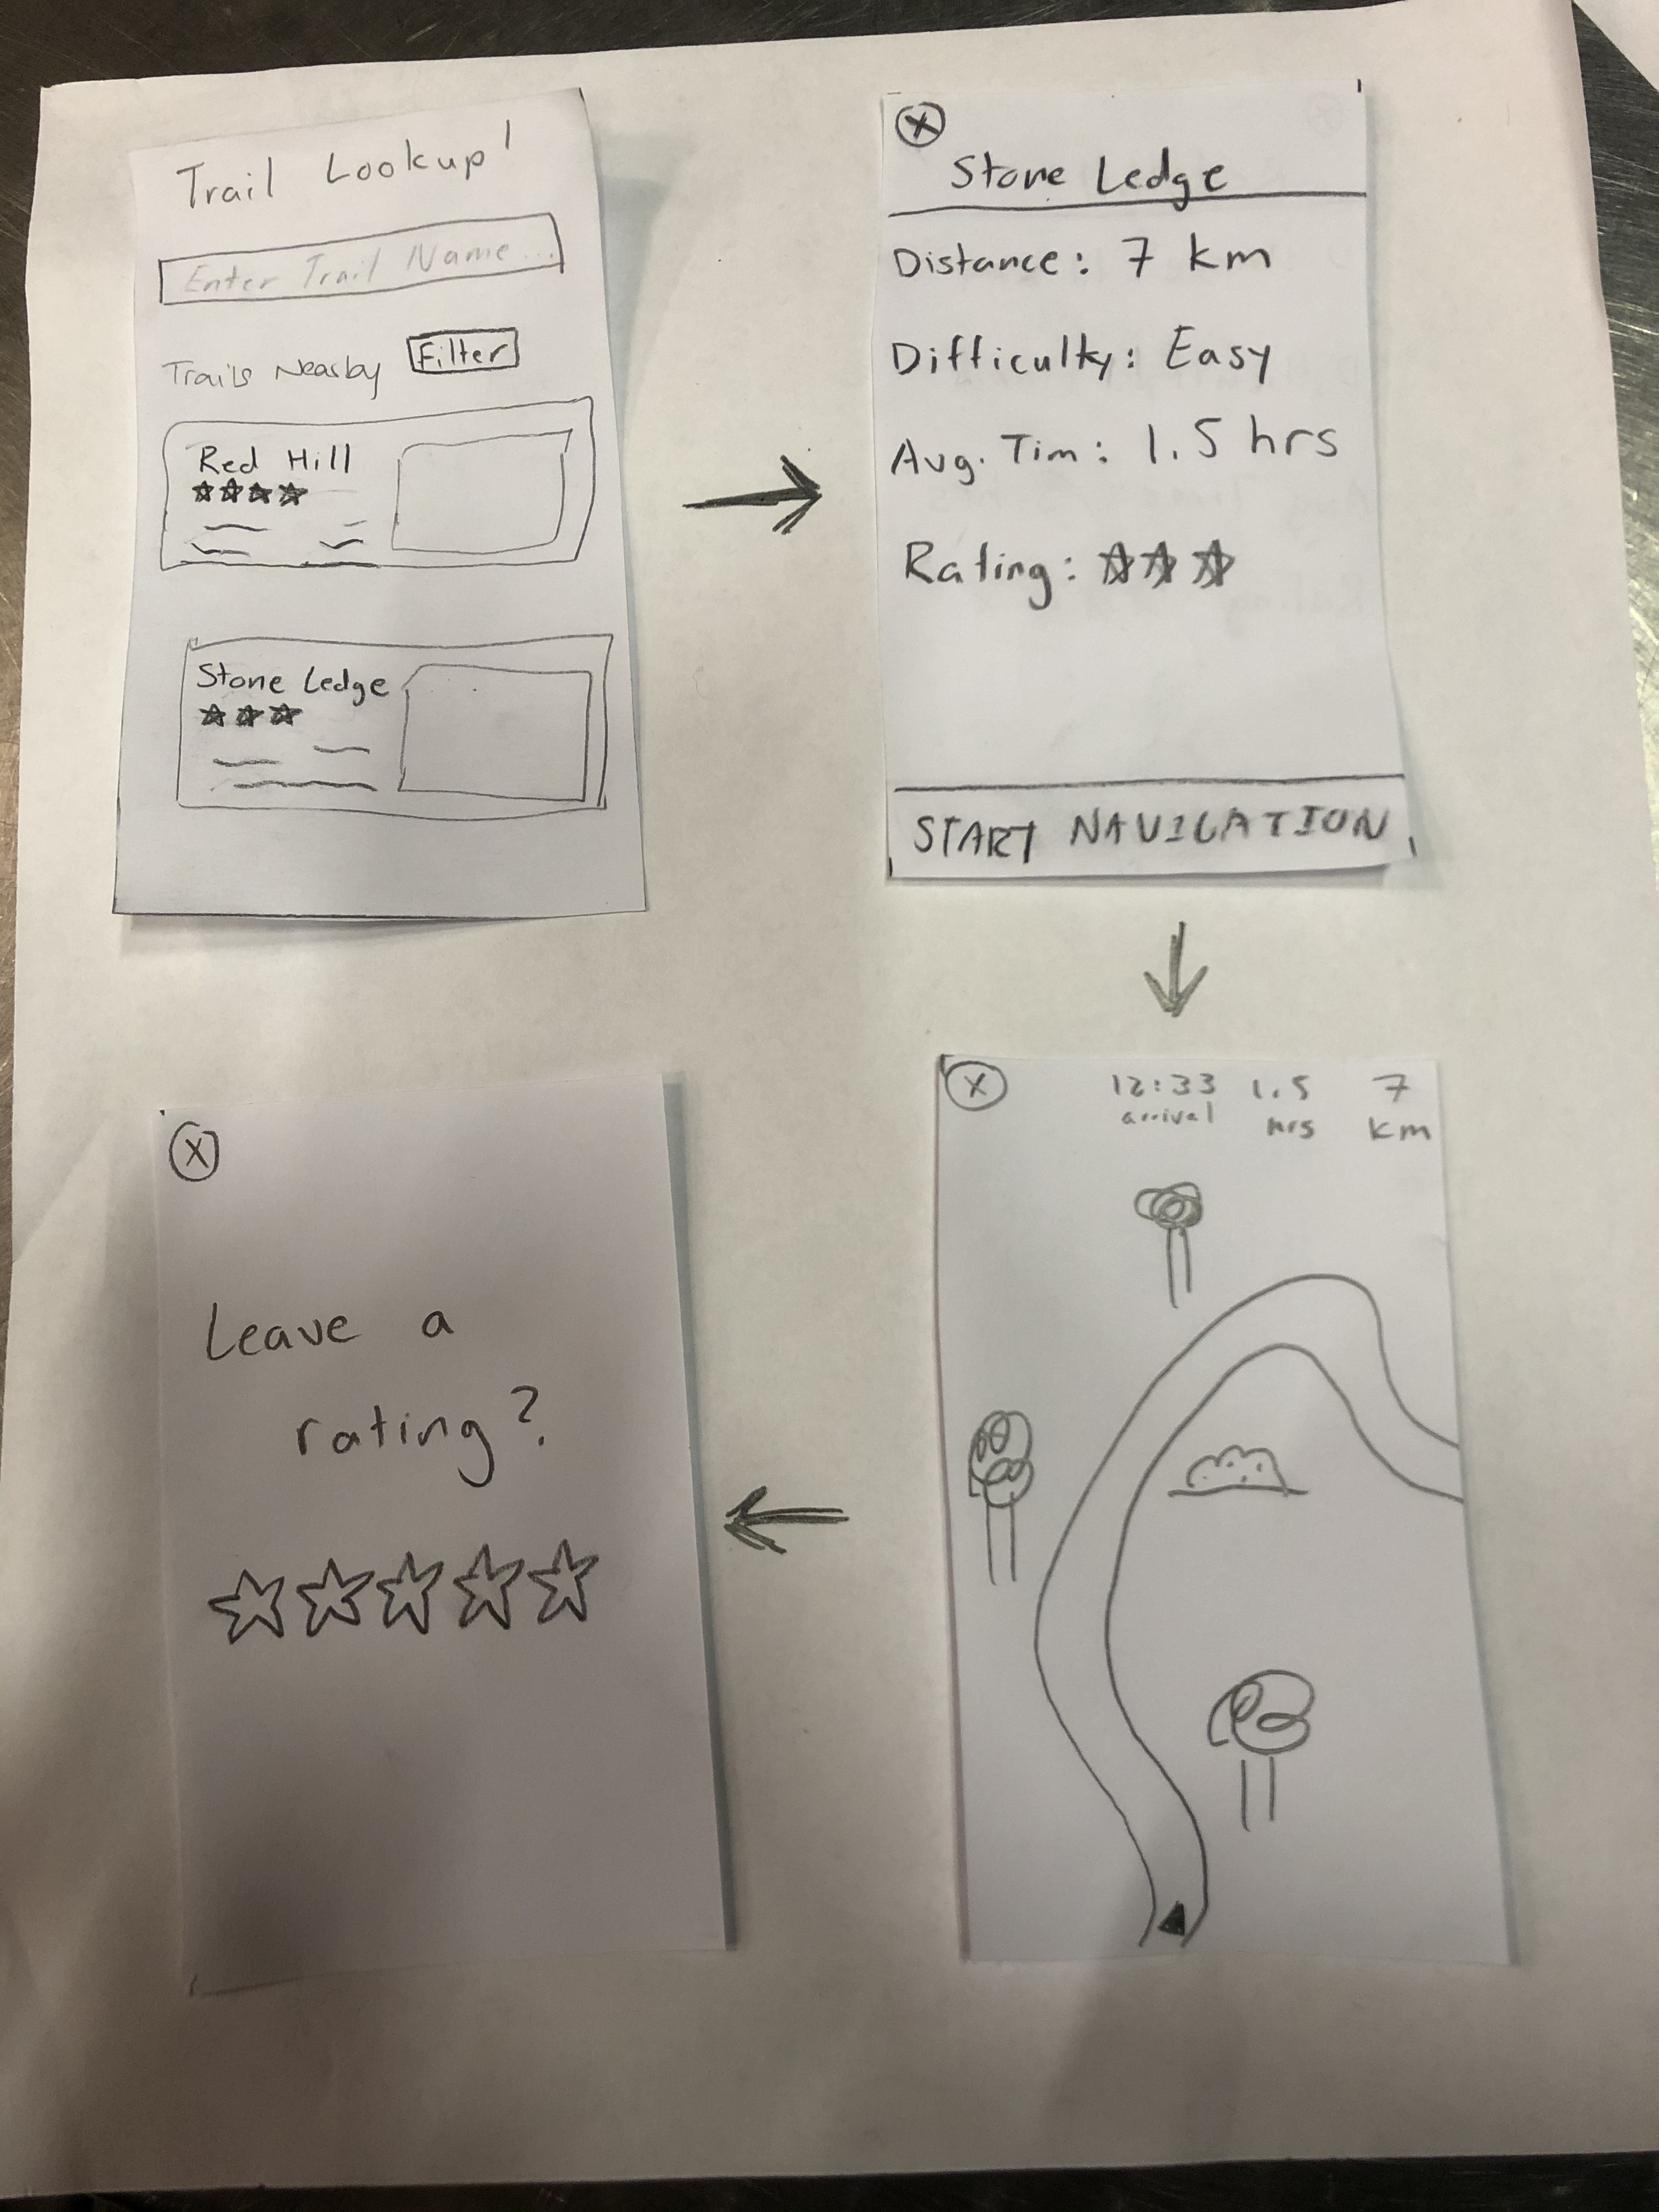 Trail Lookup!
Enter Trail Name...
Trails Nearby
Filter
Red Hill
Stone Ledge
X
Stone Ledge
Distance: 7 km
Difficulty: Easy
Avg. Tim: 1.5 hrs
Rating:
START NAVIGATION
X
12:33 1.5 7
arrival hrs km
X
Leave a
rating?